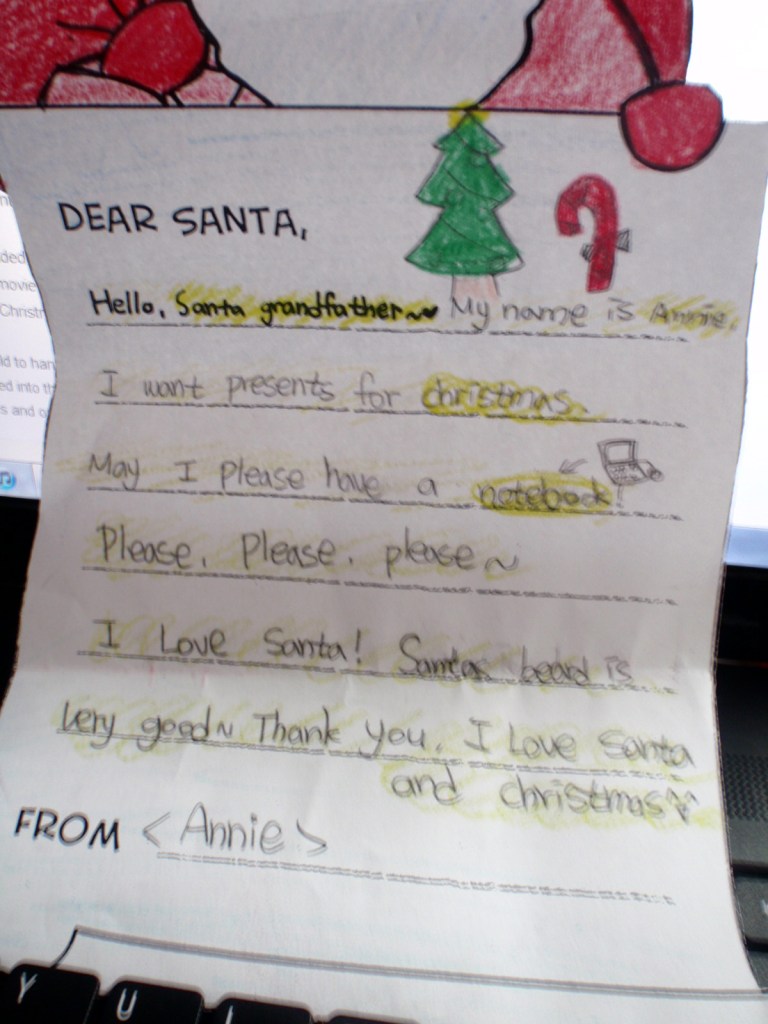 DEAR SANTA,
Hello, Santa grandfather~♥ My name is Annie.
I want presents for christmas.
May I please have a notebook!
Please, Please, please~
I Love Santa! Santas beard is
very good~ Thank you, I Love Santa
and christmas♡
FROM <Annie>
ded
movie
Christm
ld to han
ed into th
s and o
Y U